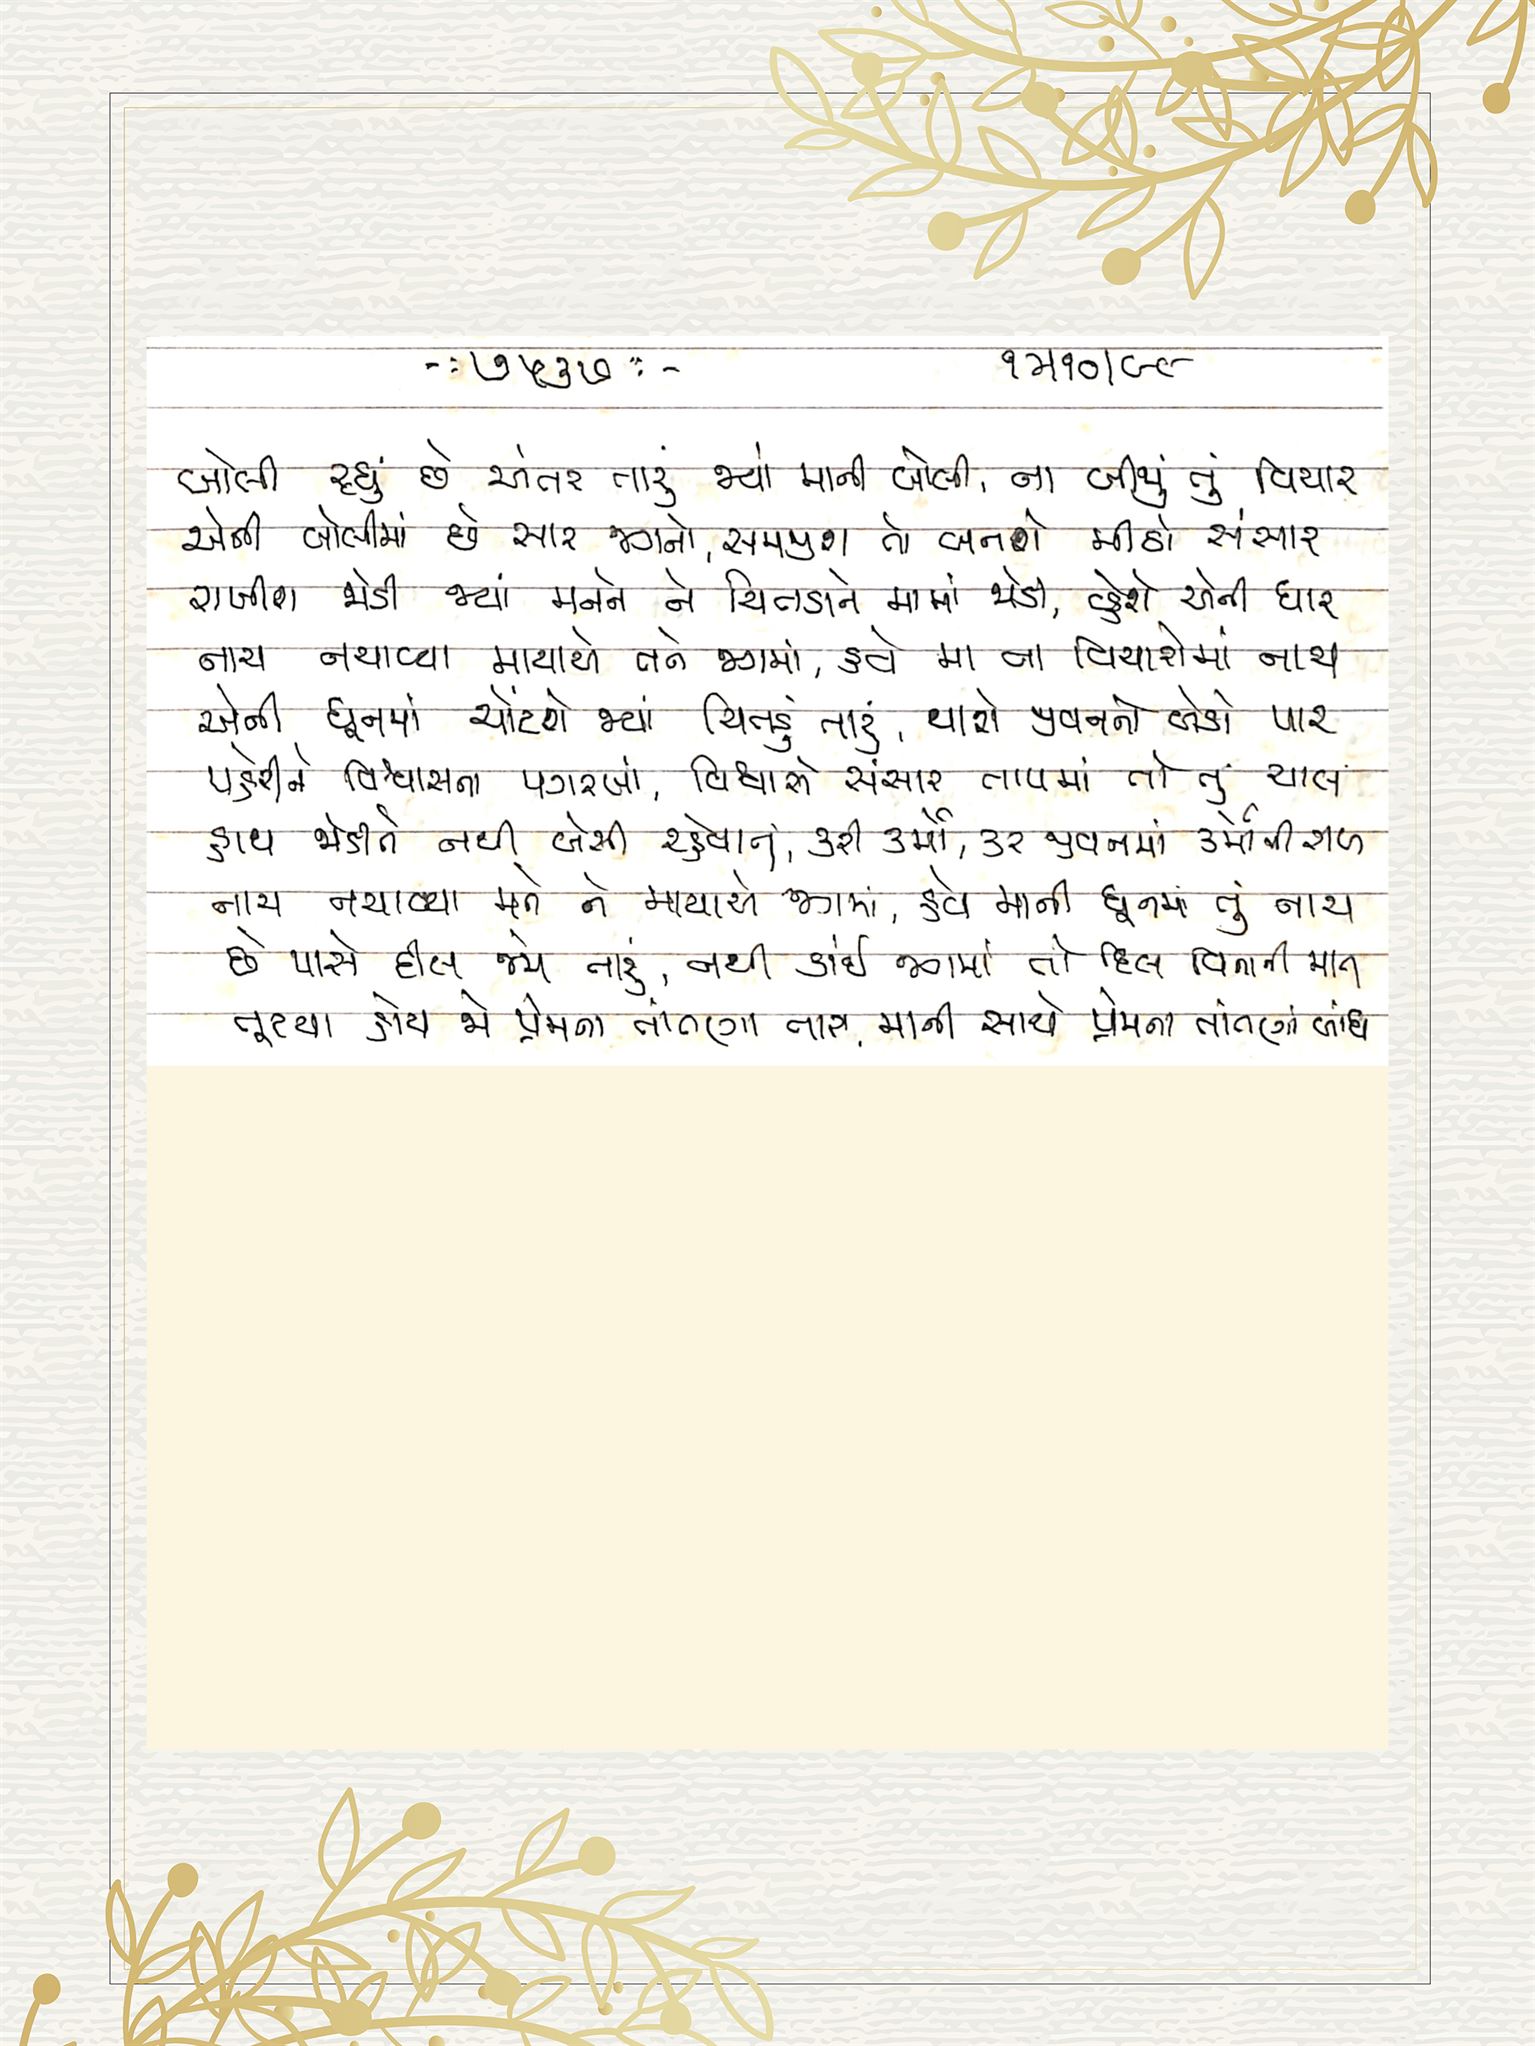 -: ૭૫૩૭ :-
બોલી રહ્યું છે અંતર તારું જ્યાં માની બોલી, ના બીજું તું વિચાર
એની બોલીમાં છે સાર જગનો, સમજીશ તો બનશે મીઠો સંસાર
રાખીશ જોડી જ્યાં મનને ને ચિતડાને મામાં જોડી, વ્હેશે એની ધાર
નાચ નચાવ્યા માયાએ તને જગમાં, હવે મા ના વિચારોમાં નાચ
એની ધૂનમાં ચોંટશે જ્યાં ચિતડું તારું, થાશે જીવનનો બેડો પાર
પહેરીને વિશ્વાસના પગરખાં, વિશ્વાસે સંસાર તાપમાં તો તું ચાલ
હાથ જોડીને નથી બેસી રહેવાનું, કરી કર્મો, કર જીવનમાં કર્મોની
નાચ નચાવ્યા મને ને માયાએ જગમાં, હવે માની ધૂનમાં તું નાચ
છે પાસે દીલ જેમ તારું, નથી કાંઈ જગમાં તો દિલ વિનાની માત
તૂટયા હોય જો પ્રેમના તાંતણા તારા, માની સાથે પ્રેમના તાંતણાં બાંધ